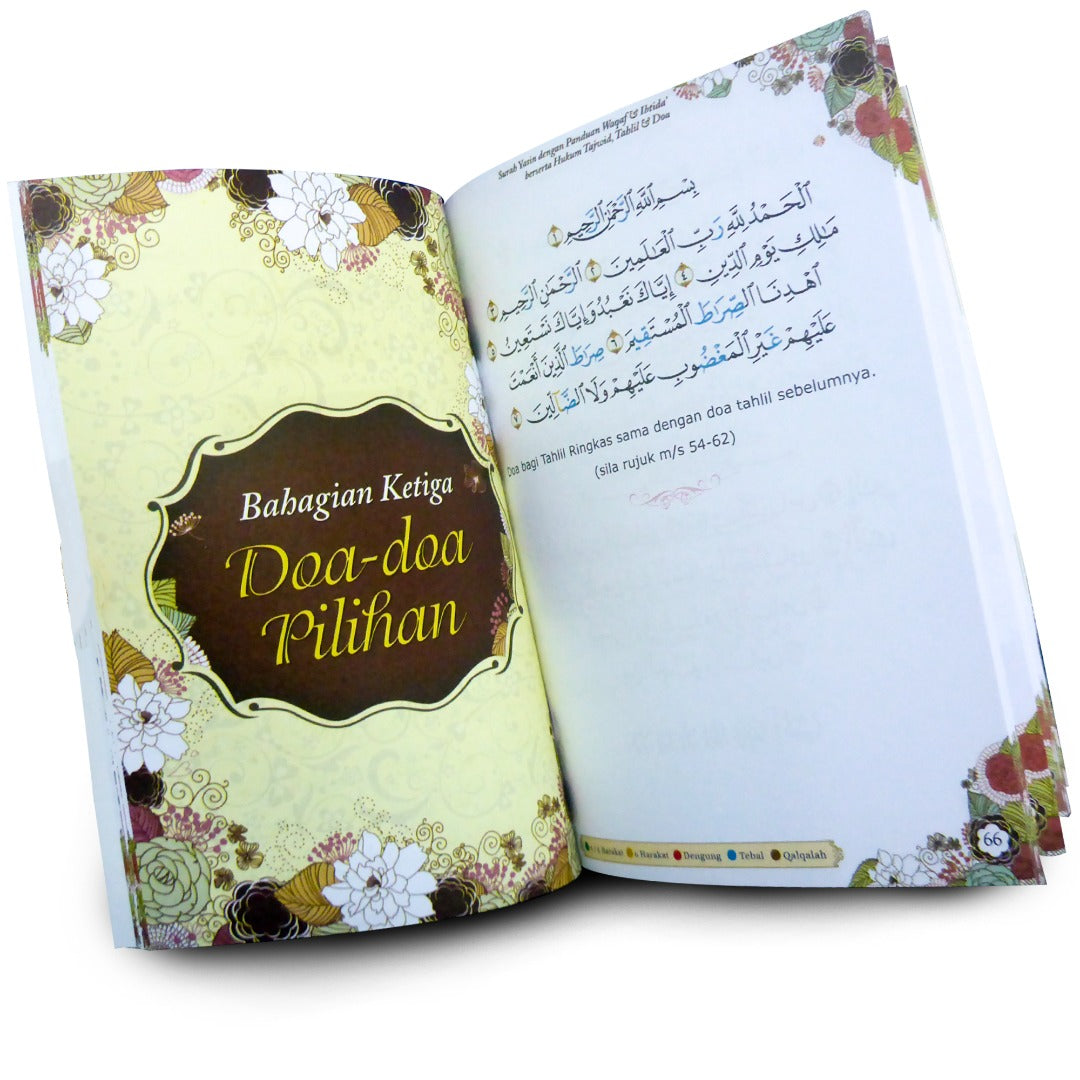 Bahagian Ketiga
Doa-doa
Pilihan
Surah Yasin dengan Panduan Waqaf & Ibtida'
berserta Hukum Tajwid, Tahlil & Doa
بِسْمِ اللَّهِ الرَّحْمَٰنِ الرَّحِيمِ ١
الْحَمْدُ لِلَّهِ رَبِّ الْعَالَمِينَ ٢ الرَّحْمَٰنِ الرَّحِيمِ ٣
مَالِكِ يَوْمِ الدِّينِ ٤ إِيَّاكَ نَعْبُدُ وَإِيَّاكَ نَسْتَعِينُ ٥
اهْدِنَا الصِّرَاطَ الْمُسْتَقِيمَ ٦ صِرَاطَ الَّذِينَ أَنْعَمْتَ
عَلَيْهِمْ غَيْرِ الْمَغْضُوبِ عَلَيْهِمْ وَلَا الضَّالِّينَ ٧
Doa bagi Tahlil Ringkas sama dengan doa tahlil sebelumnya.
(sila rujuk m/s 54-62)
Harakat 6 Harakat Dengung Tebal Qalqalah
66